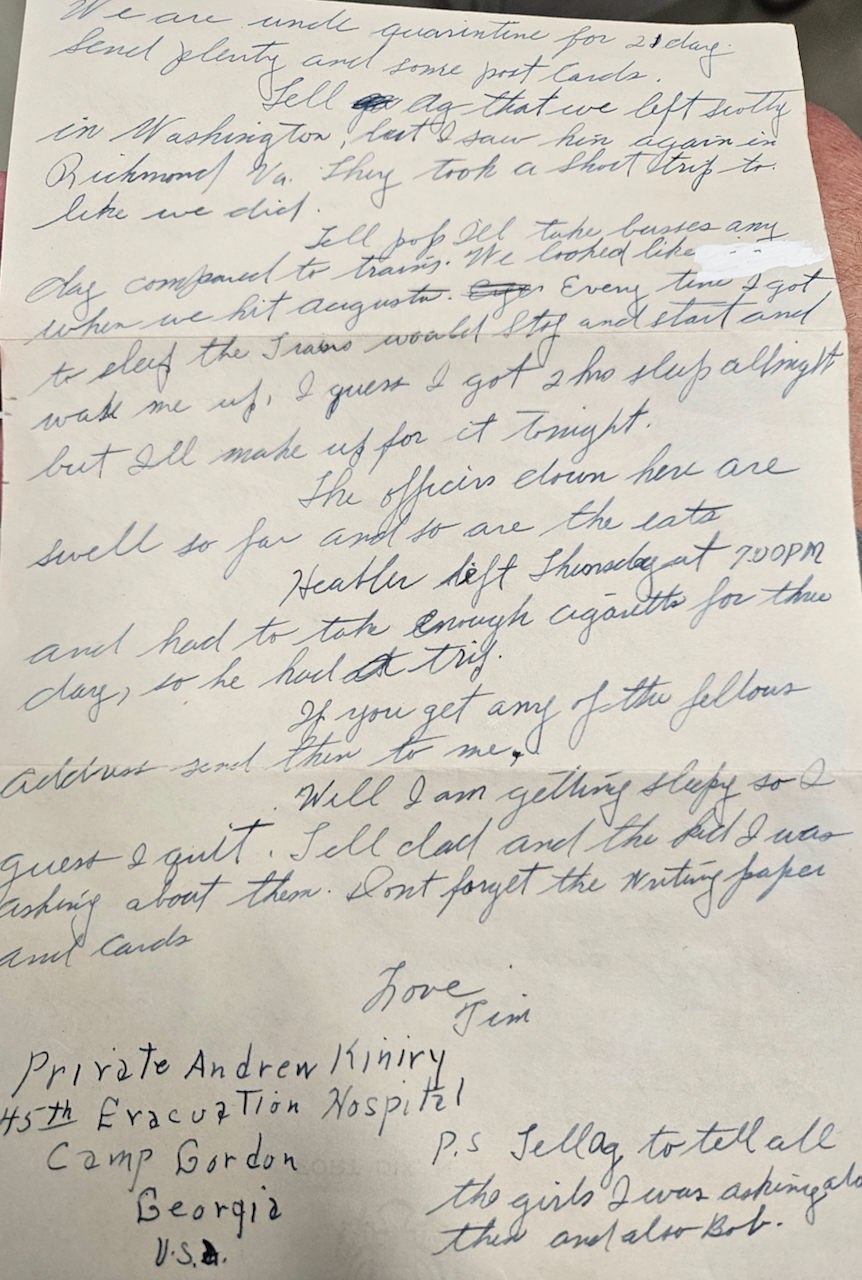 We are unde quarintine for 21 day.
Send plenty and some post Cards.
Tell Ag that we left scotty
in Washington, but I saw him again in
Richmond Va. They took a short trip to.
like we did.
Tell pop Ill take busses any
day compared to trains. We looked like
when we hit augusta. Every time I got
to sleep the Trains would Stop and start and
wake me up, I guess I got 2 hrs sleep allnight
but Ill make up for it Tonight.
The officers down here are
swell so far and so are the eats
left Thursday at 7:00PM
and had to take enough cigaretts for three
days, so he had a trip.
If you get any of the fellows
address send them to me,
Well I am getting sleepy so I
guess I quit. Tell dad and the kid I was
asking about them. Dont forget the writing paper
and Cards
Love
Jim
Private Andrew Kiniry
45th Evacuation Hospital
Camp Gordon
Georgia
U.S.A.
P.S Tell Ag to tell all
the girls I was asking abo
them and also Bob.